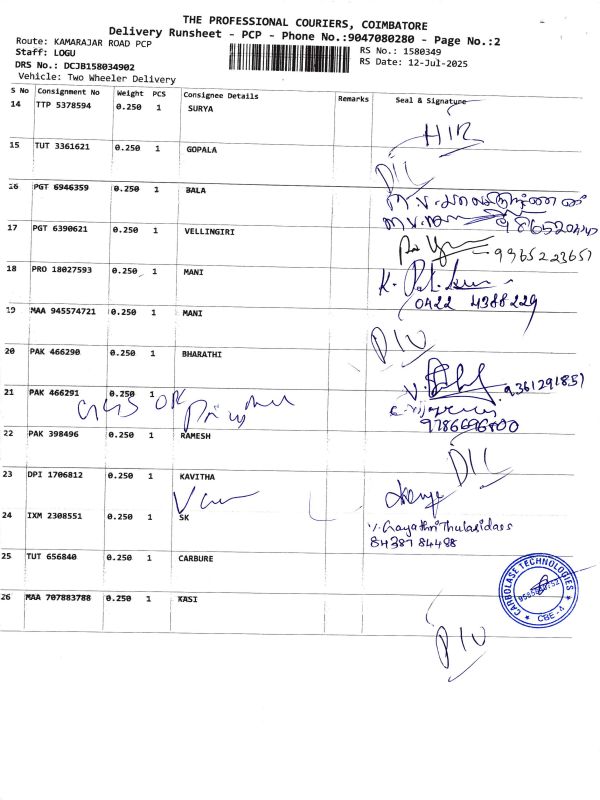 THE PROFESSIONAL COURIERS, COIMBATORE
Delivery Runsheet - PCP - Phone No.:9047080280 - Page No.:2
Route: KAMARAJAR ROAD PCP
Staff: LOGU
DRS No.: DCJB158034902
Vehicle: Two Wheeler Delivery
RS No.: 1580349
RS Date: 12-Jul-2025
S No Consignment No Weight PCS Consignee Details Remarks Seal & Signature
14 TTP 5378594 0.250 1 SURYA
15 TUT 3361621 0.250 1 GOPALA
16 PGT 6946359 0.250 1 BALA
17 PGT 6390621 0.250 1 VELLINGIRI
9965223651
18 PRO 18027593 0.250 1 MANI
0422 4388229
19 MAA 945574721 0.250 1 MANI
20 PAK 466290 0.250 1 BHARATHI
9361291851
21 PAK 466291 0.250 1
9786696800
22 PAK 398496 0.250 1 RAMESH
23 DPI 1706812 0.250 1 KAVITHA
24 IXM 2308551 0.250 1 SK
Gayathri Thulasidass
84387 84498
25 TUT 656840 0.250 1 CARBURE
CARBOLASE TECHNOLOGIES
CBE - 4
26 MAA 707883788 0.250 1 KASI